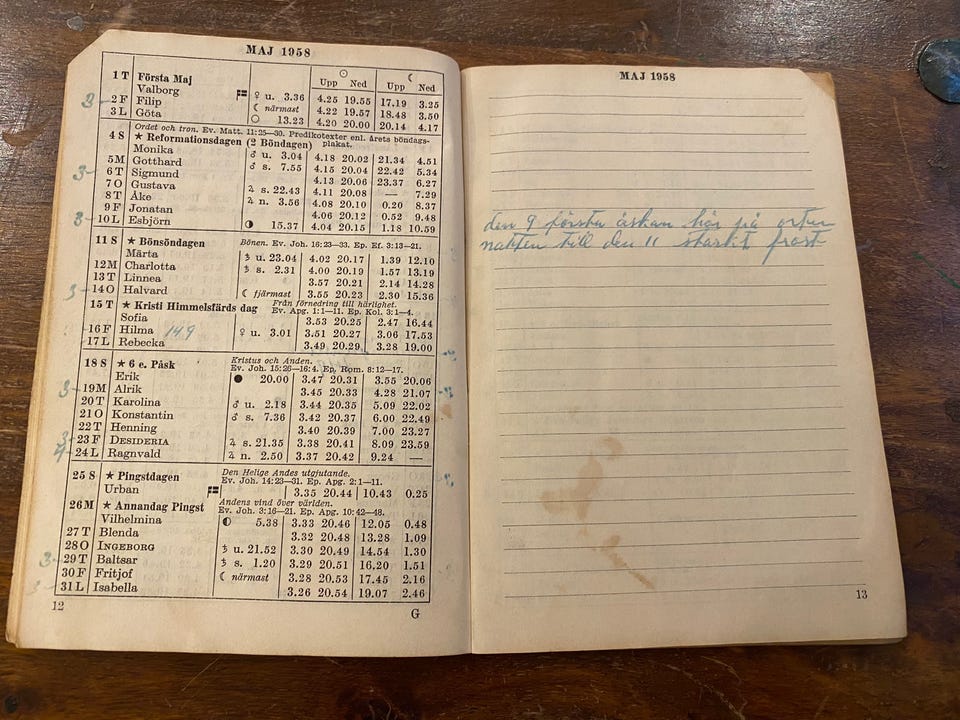 MAJ 1958
☉ ☾
Upp Ned Upp Ned
1 T Första Maj
Valborg ♀ u. 3.36 4.25 19.55 17.19 3.25
3 2 F Filip ☾ närmast 4.22 19.57 18.48 3.50
3 L Göta ○ 13.23 4.20 20.00 20.14 4.17
Ordet och tron. Ev. Matt. 11:25—30. Predikotexter enl. årets böndags-
4 S ★ Reformationsdagen (2 Böndagen) plakat.
Monika ♂ u. 3.04 4.18 20.02 21.34 4.51
5 M Gotthard ♂ s. 7.55 4.15 20.04 22.42 5.34
3 6 T Sigmund 4.13 20.06 23.37 6.27
7 O Gustava ♃ s. 22.43 4.11 20.08 — 7.29
8 T Åke ♃ n. 3.56 4.08 20.10 0.20 8.37
9 F Jonatan 4.06 20.12 0.52 9.48
3 10 L Esbjörn ◑ 15.37 4.04 20.15 1.18 10.59
11 S ★ Bönsöndagen Bönen. Ev. Joh. 16:23—33. Ep. Ef. 3:13—21.
Märta ♄ u. 23.04 4.02 20.17 1.39 12.10
12 M Charlotta ♄ s. 2.31 4.00 20.19 1.57 13.19
13 T Linnea 3.57 20.21 2.14 14.28
3 14 O Halvard ☾ fjärmast 3.55 20.23 2.30 15.36
15 T ★ Kristi Himmelsfärds dag Från förnedring till härlighet.
Ev. Apg. 1:1—11. Ep. Kol. 3:1—4.
Sofia 3.53 20.25 2.47 16.44
16 F Hilma 149 ♀ u. 3.01 3.51 20.27 3.06 17.53
17 L Rebecka 3.49 20.29 3.28 19.00
18 S ★ 6 e. Påsk Kristus och Anden.
Ev. Joh. 15:26—16:4. Ep. Rom. 8:12—17.
Erik ● 20.00 3.47 20.31 3.55 20.06
3 19 M Alrik 3.45 20.33 4.28 21.07
20 T Karolina ♂ u. 2.18 3.44 20.35 5.09 22.02
21 O Konstantin ♂ s. 7.36 3.42 20.37 6.00 22.49
22 T Henning 3.40 20.39 7.00 23.27
3 23 F DESIDERIA ♃ s. 21.35 3.38 20.41 8.09 23.59
4 24 L Ragnvald ♃ n. 2.50 3.37 20.42 9.24 —
25 S ★ Pingstdagen Den Helige Andes utgjutande.
Ev. Joh. 14:23—31. Ep. Apg. 2:1—11.
Urban 3.35 20.44 10.43 0.25
26 M ★ Annandag Pingst Andens vind över världen.
Ev. Joh. 3:16—21. Ep. Apg. 10:42—48.
Vilhelmina ◐ 5.38 3.33 20.46 12.05 0.48
27 T Blenda 3.32 20.48 13.28 1.09
28 O INGEBORG ♄ u. 21.52 3.30 20.49 14.54 1.30
3 29 T Baltsar ♄ s. 1.20 3.29 20.51 16.20 1.51
30 F Fritjof ☾ närmast 3.28 20.53 17.45 2.16
31 L Isabella 3.26 20.54 19.07 2.46
12
G
MAJ 1958
den 9 första åskan här på orten
natten till den 11 starkt frost
13